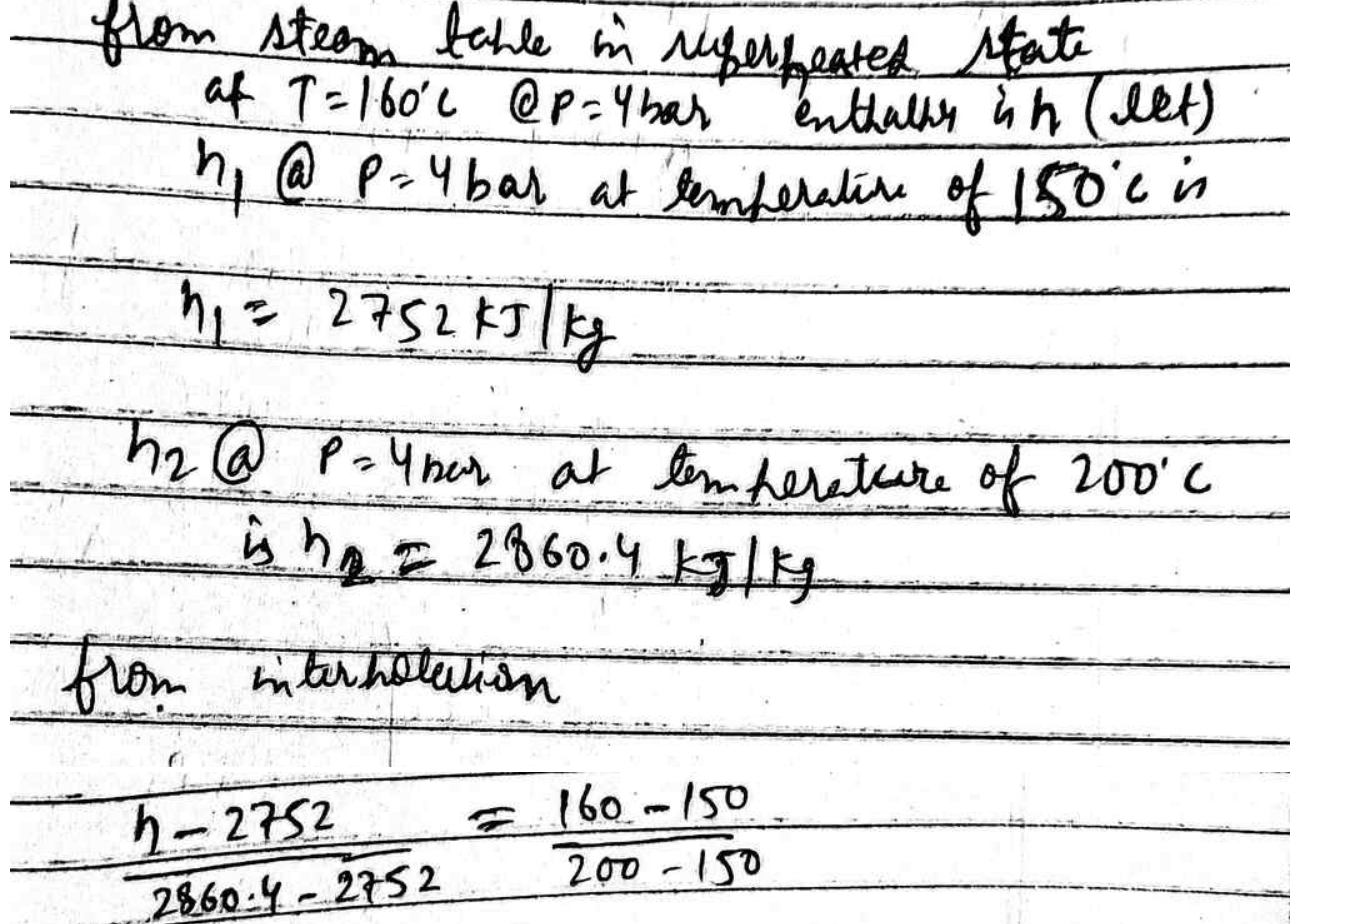 from steam table in superheated state
at T=160°C @P=4bar enthalpy is h (let)
h1 @ P=4bar at temperature of 150°C is
h1 = 2752 KJ/kg
h2 @ P=4bar at temperature of 200°C
is h2 = 2860.4 kJ/kg
from interpolation
h-2752 = 160-150
2860.4-2752 200-150